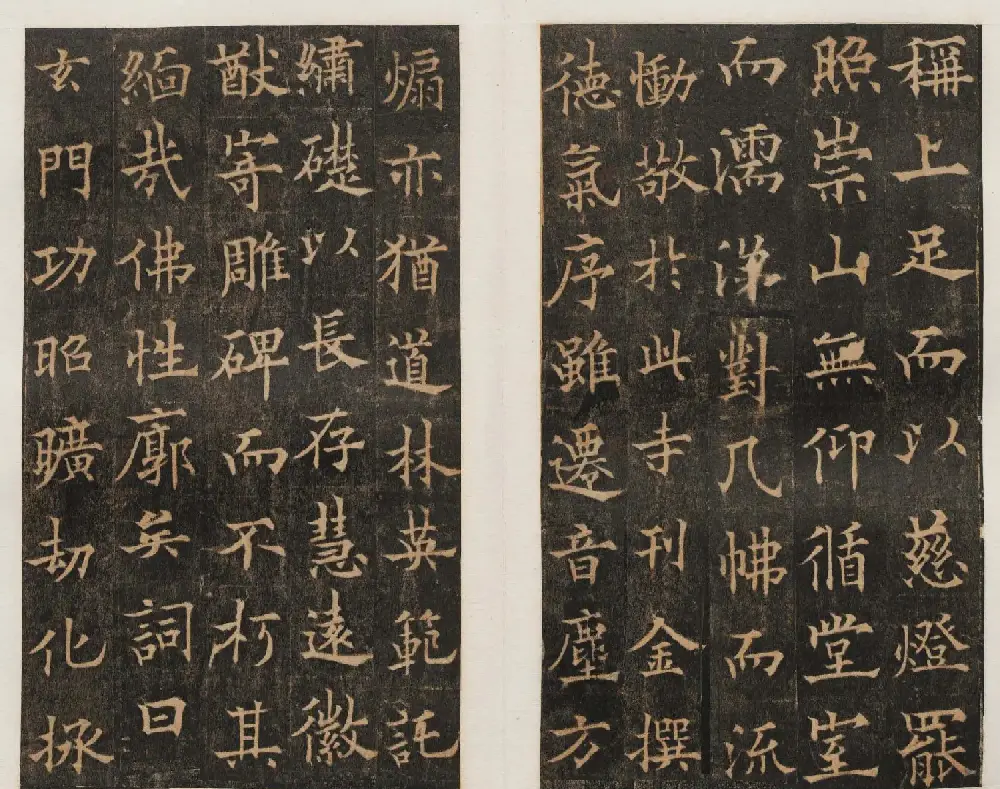 稱上足而以慈燈罷
照崇山無仰循堂室
而濡涕對几而流
慟敬於此寺刊金撰
德氣序雖遷音塵方
煽亦猶道林英範託
繡礎以長存慧遠徽
猷寄雕碑而不朽其
緬哉佛性廓矣詞曰
玄門功昭曠劫化拯